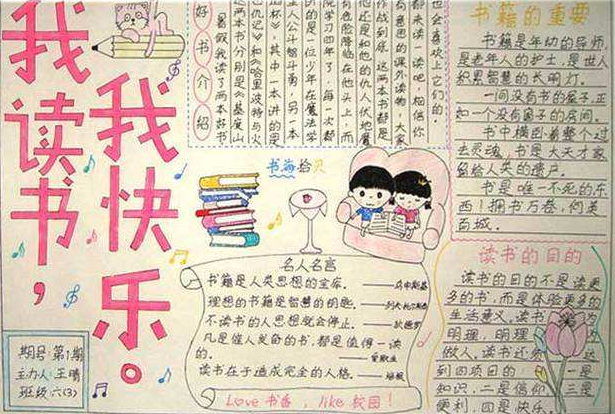 我读书，
我快乐。
好书介绍
暑假我读了两本好书
这两本书分别是《基度山
仇记》和《哈里波特与火
杯》其中一本讲的是
主人公斗智斗勇，另一本
的是一位少年在魔法学
院学习四年了，每一次都
有危险降临在他头上，而
他还是和他的仇人伏地魔
作战到底，这两本书都是
有意思的课外读物，大家
都来读一读吧，相信你
也会喜欢上它们的。
书籍的重要
书籍是年幼的导师
是老年人的护士，是世人
积累智慧的长明灯。
一间没有书的屋子，正
如一个没有窗子的房间。
书中横卧着整个过
去灵魂，书是大天才家
留给人类的遗产。
书是唯一不死的东
西！拥书万卷，何美
百城。
书海拾贝
名人名言
书籍是人类思想的宝库。
理想的书籍是智慧的钥匙。——列夫·托尔斯泰
不读书的人思想就会停止。——狄德罗
凡是催人奋的书，都是值得一读
的。
读书在于造成完全的人格。——培根
Love书香，like校园！
读书的目的
读书的目的不是读更
多的书，而是体验更多的
生活意义，读书
明理，明理
做人，读书还
到四项目的 一是
知识，二是信仰，三是
便利，四是快乐
期号：第1期
主办人：王晴
班级：六(3)